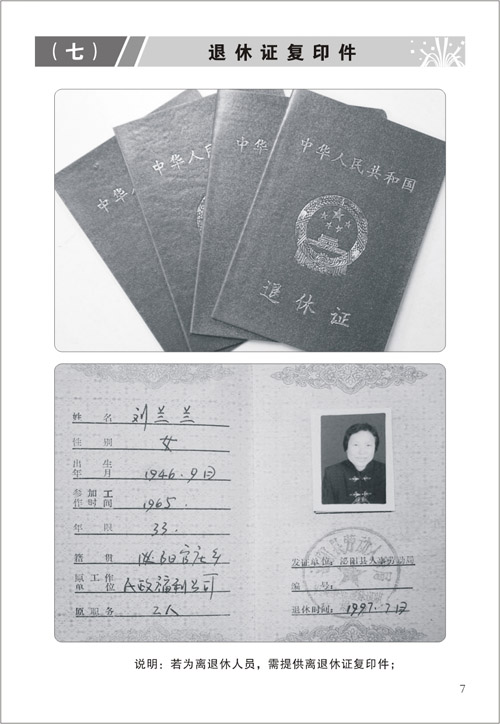 （七）
退休证复印件
中华人
中华人民
中华
中华人民共和国
退休证
姓名 刘兰兰
性别 女
出生年月 1946.9月
参加工作时间 1965.
年限 33.
籍贯 官庄乡
原工作单位 民政福利公司
原职务 工人
发证单位： 泌阳县人事劳动局
编号：
退休时间： 1997.7月
说明：若为离退休人员，需提供离退休证复印件；
7